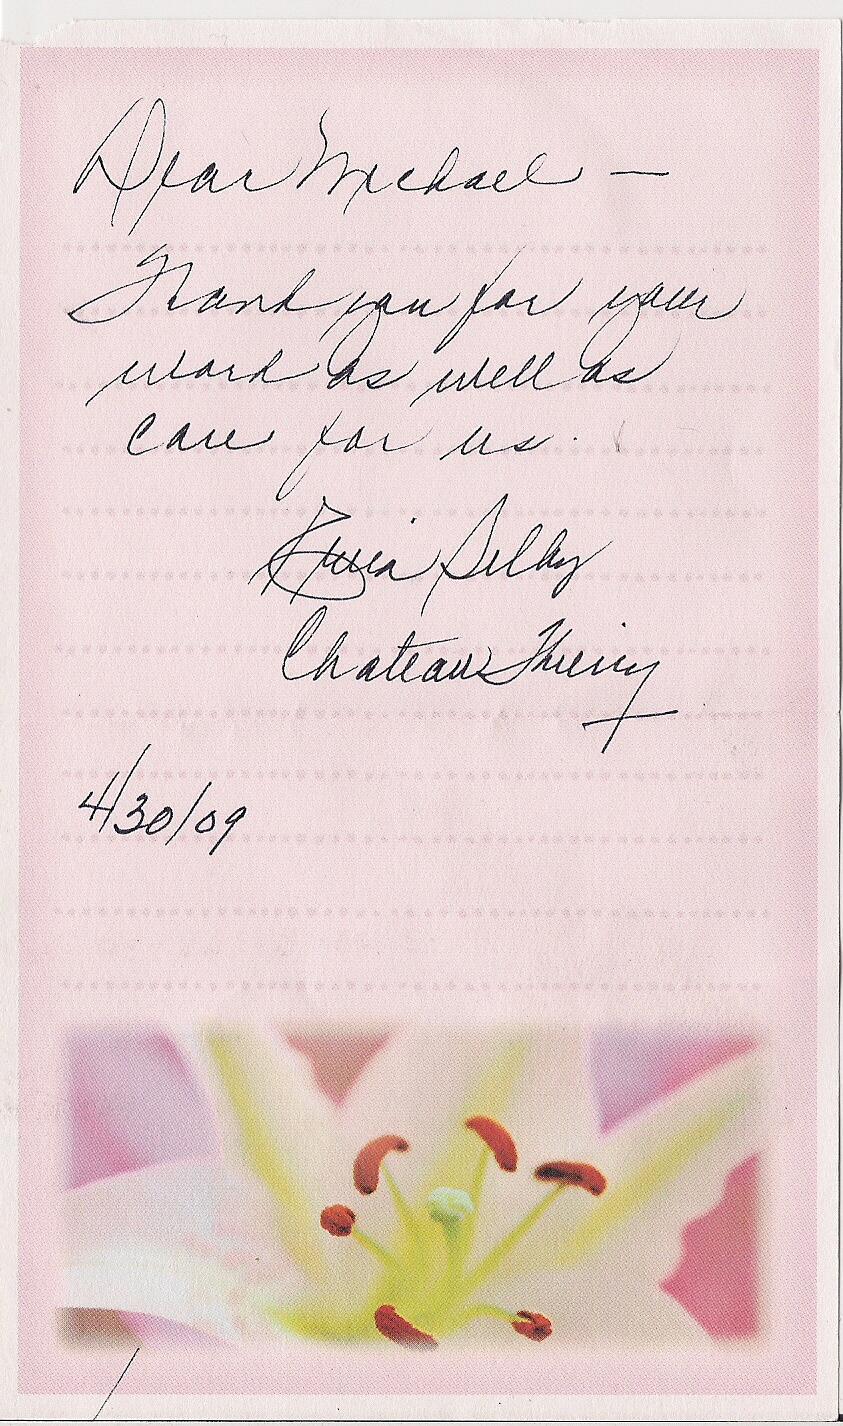 Dear Michael —
Thank you for your
word as well as
care for us.
Selby
Chateau Thierry
4/30/09